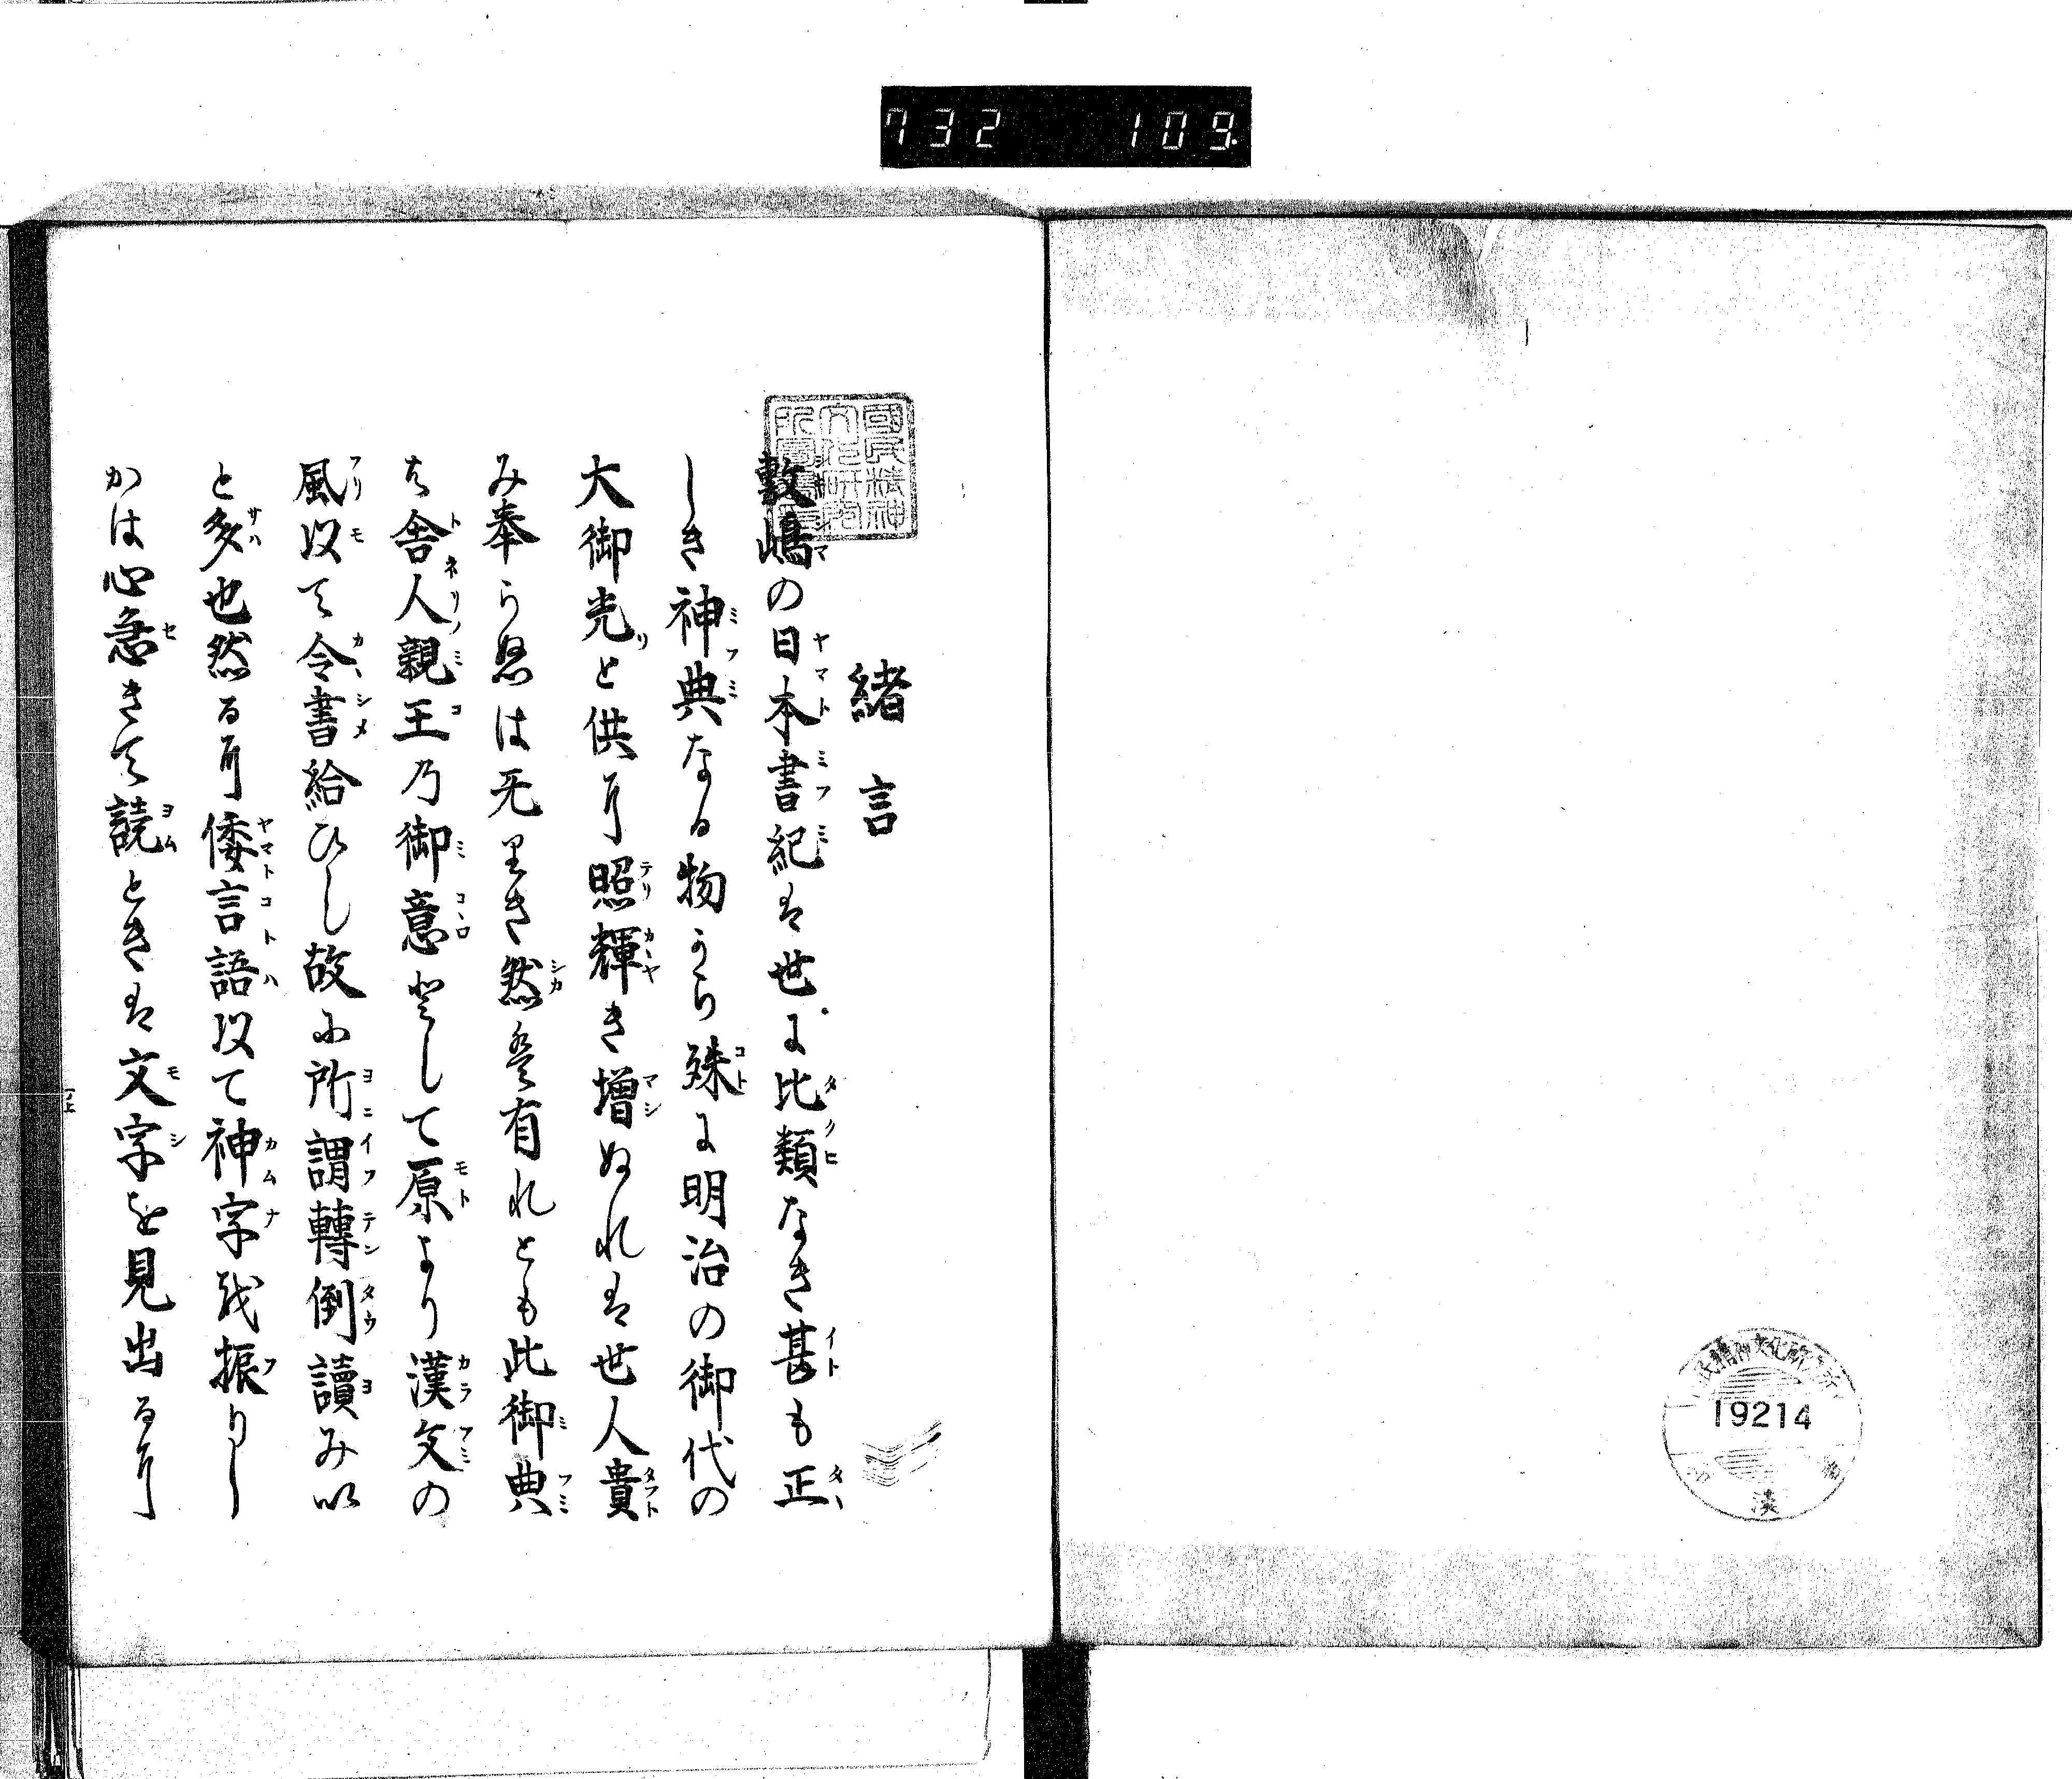 732 109
國民精神
文化研究
所圖書
19214
漢
緒言
敷嶋の日本書紀は世に比類なき甚も正
しき神典なる物から殊に明治の御代の
大御光と供に照輝き増ぬれは世人貴
み奉らぬは无りき然は有れとも此御典
は舎人親王乃御意として原より漢文の
風以て令書給ひし故に所謂轉倒讀み以
と多也然るに倭言語以て神字を振りし
かは心急きて讀ときは文字を見出るに